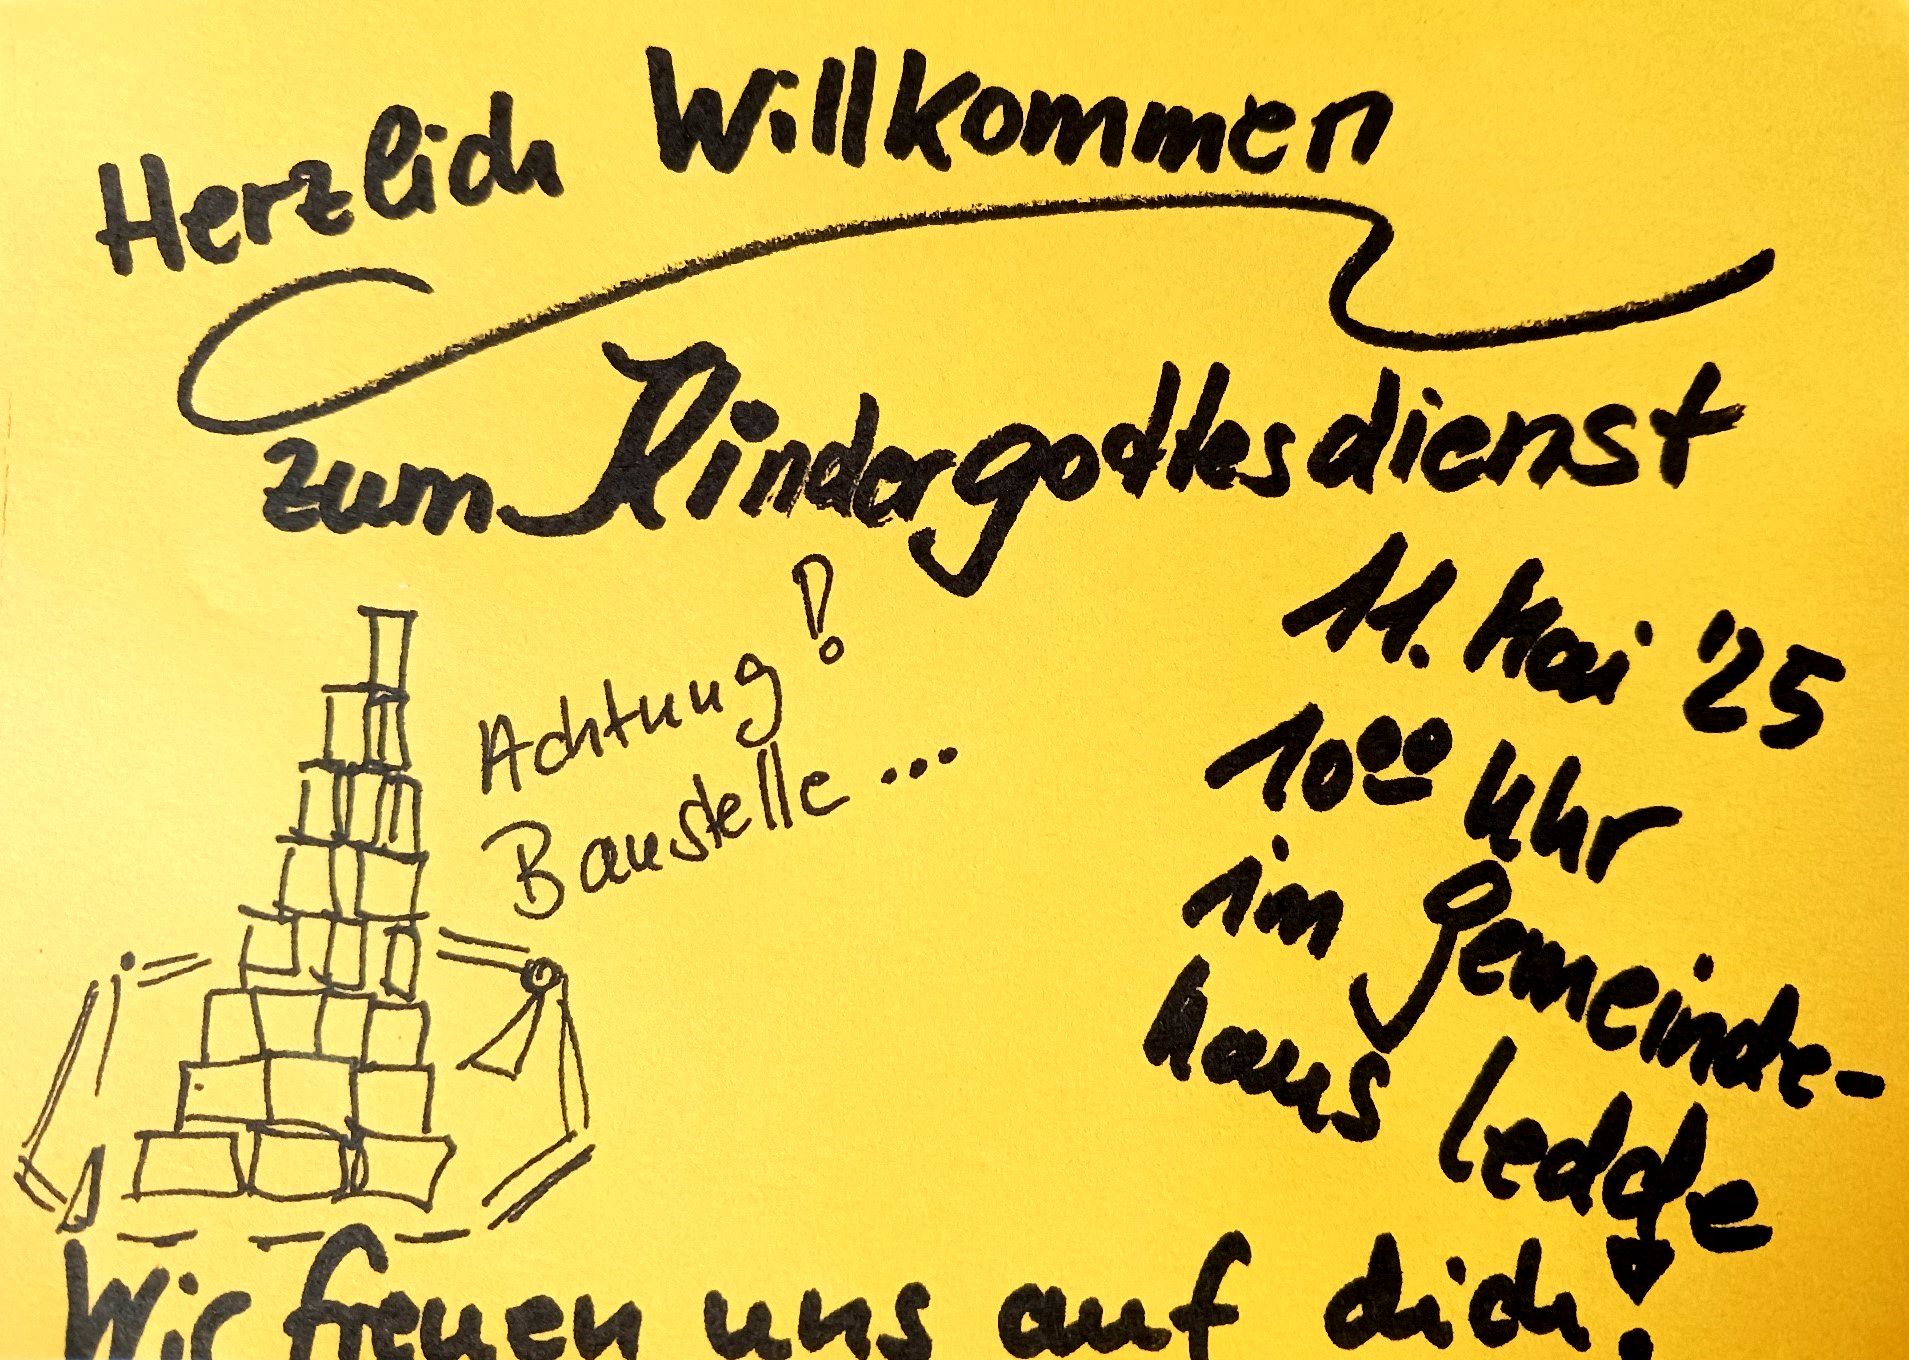 Herzlich Willkommen
zum Kindergottesdienst
Achtung!
Baustelle...
11. Mai '25
10⁰⁰ Uhr
im Gemeinde-
haus Ledde
Wir freuen uns auf dich!